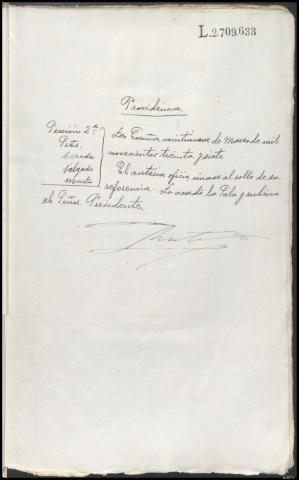 L.2.709.633
Providencia
Sección 2ª
Ptes.
Cereda
Salgado
La Coruña, veintinueve de Marzo de mil
novecientos treinta y siete
El anterior oficio, únase al rollo de su
referencia. Lo acordó la Sala y rubrica
el Señor Presidente.